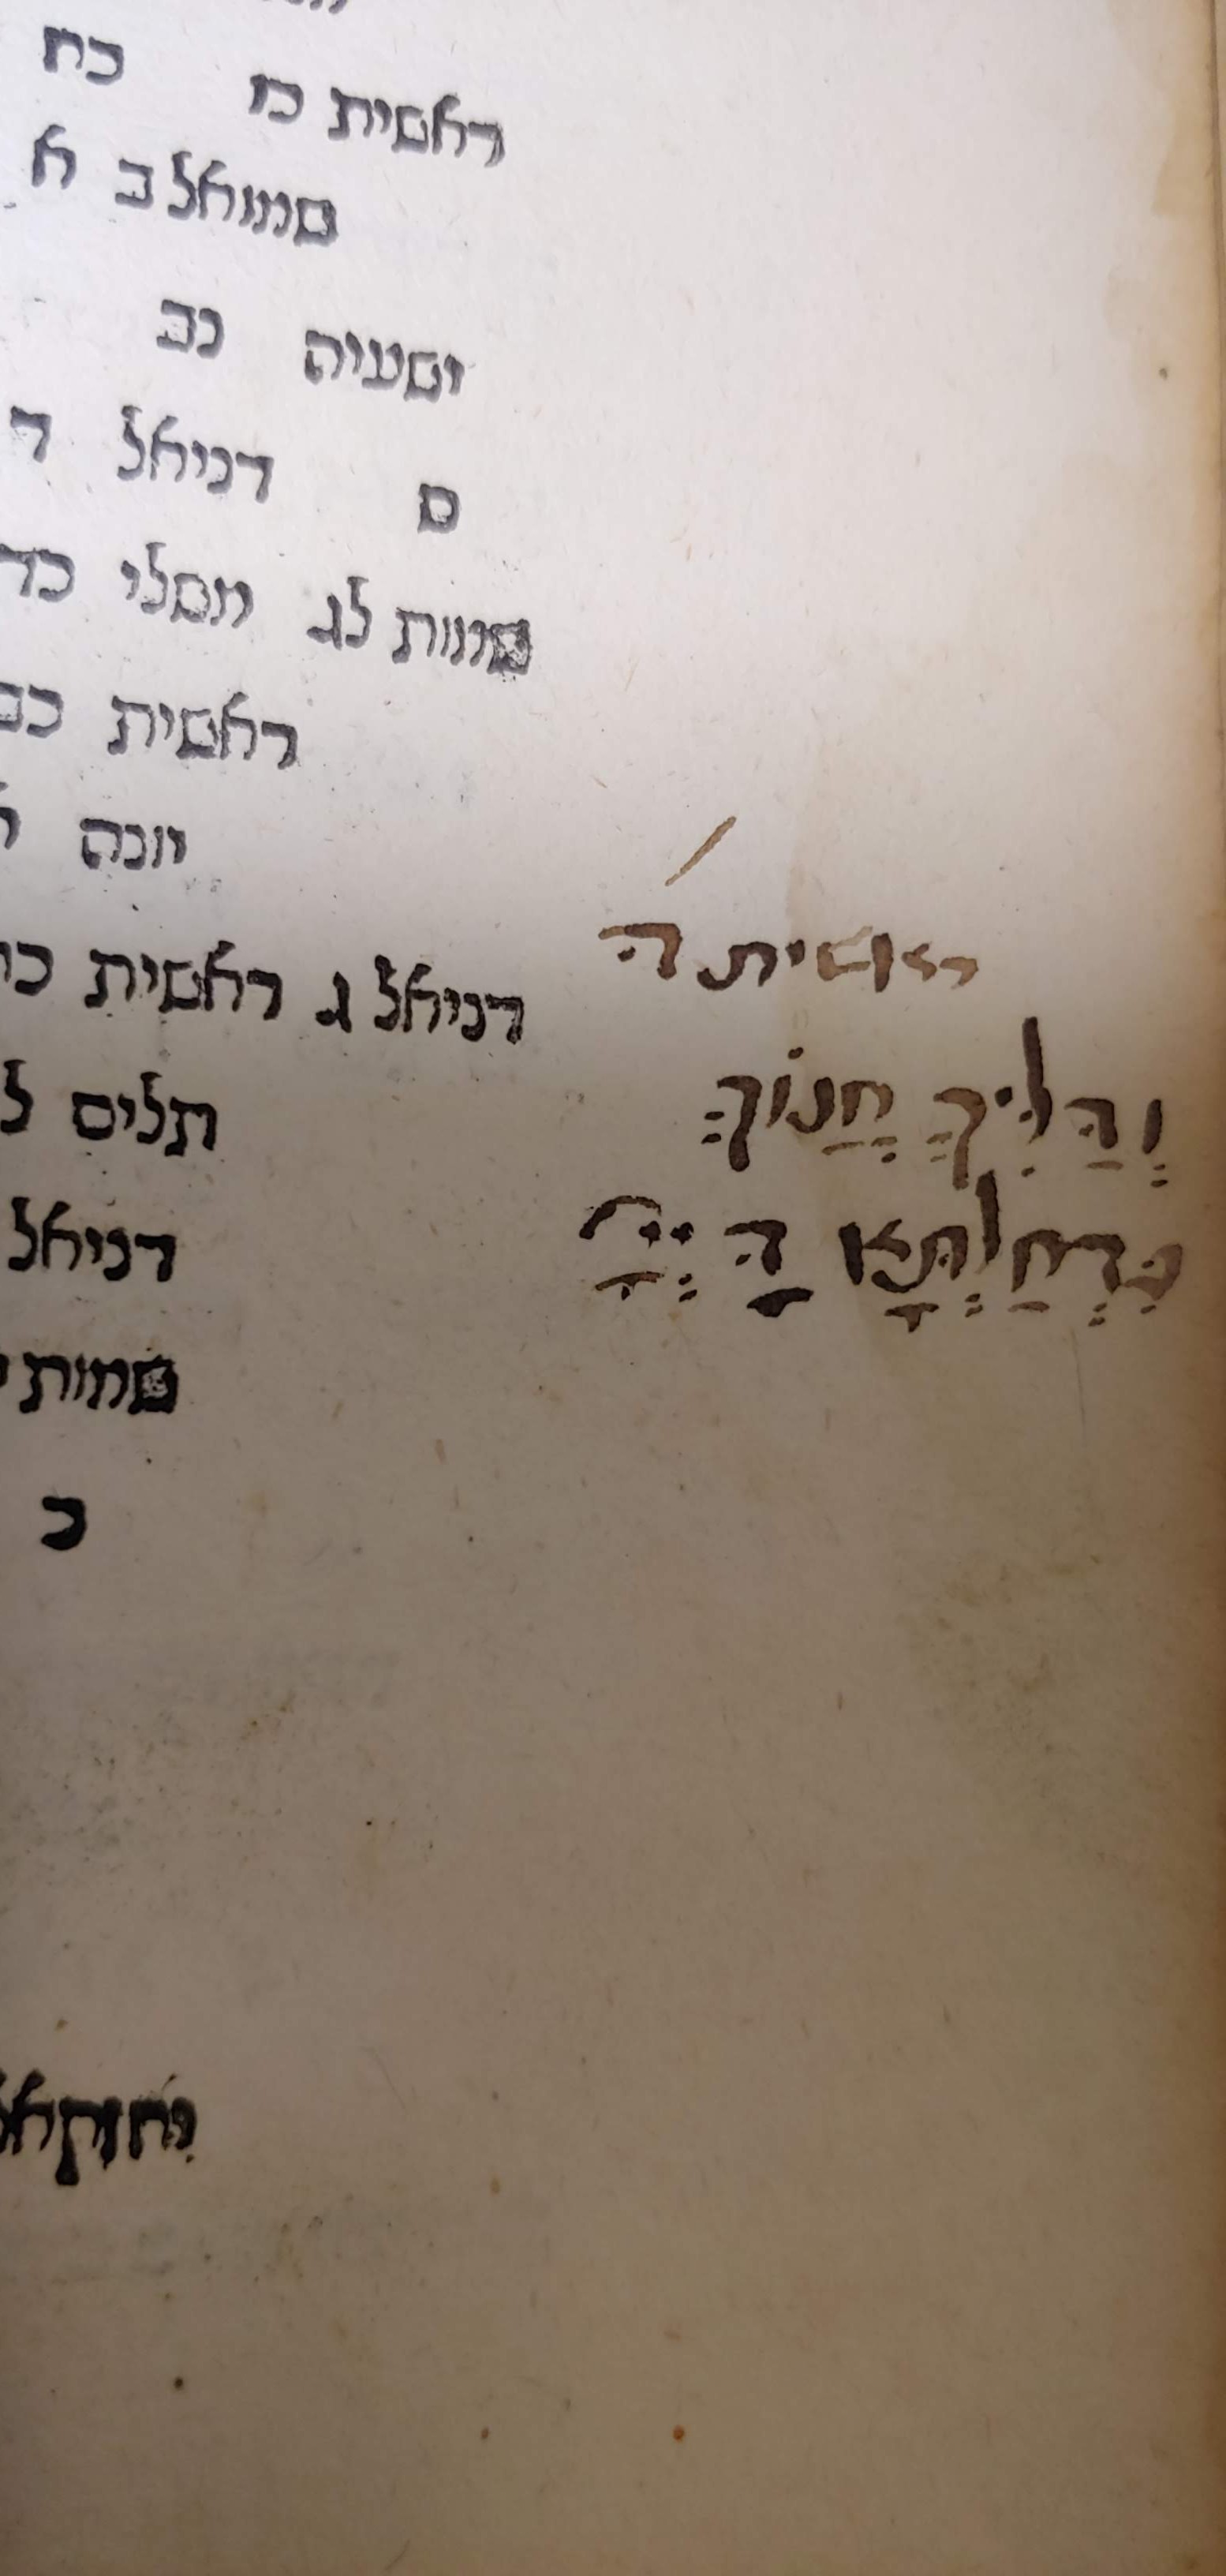 ראשית מ כח
שמואל ב א
ישעיה כב
ש דניאל ד
שמות לג משלי כד
ראשית כב
יונה
דניאל ג ראשית
ראשית ה
תלים ל
וְהַלִּיךְ חֲנוֹךְ
דניאל
בְּדְחַלְתָּא דַּיְיָ
שמות
כ
יחזקאל